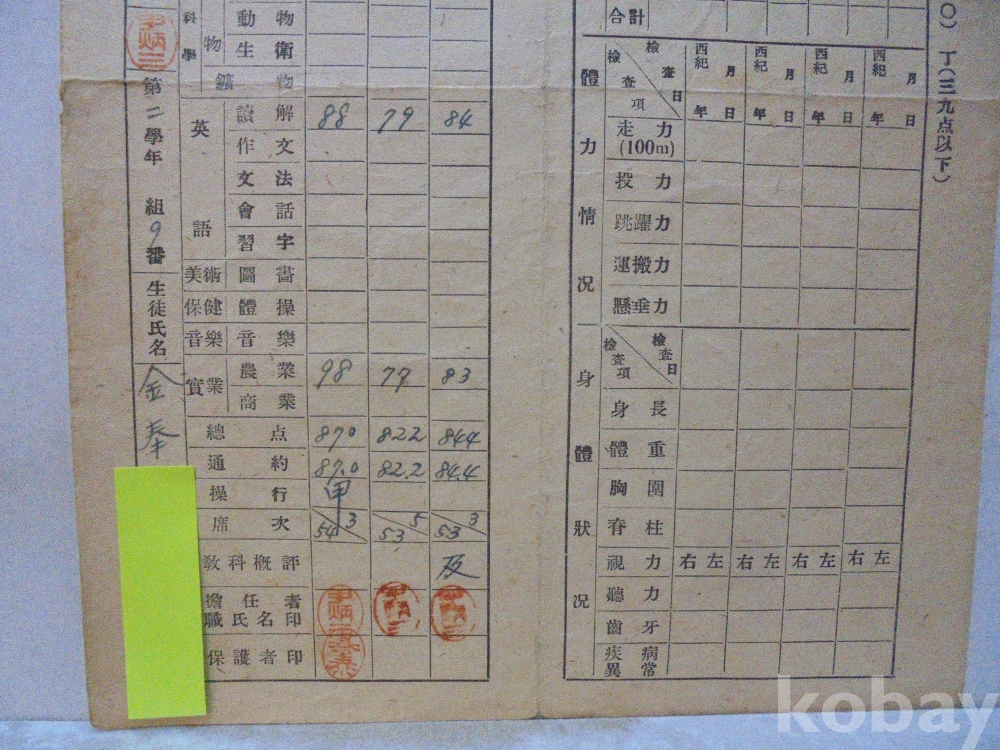 第二學年 組9番 生徒氏名 金奉
科學
動物
物
生衛
鑛物
英語
讀解 88 79 84
作文
文法
會話
習字
美術 圖畫
保健 體操
音樂 音樂
實業 農業 98 77 83
商業
總点 870 822 844
通約 87.0 82.2 84.4
操行 甲
席次 3/54 5/53 3/53
敎科槪評
擔任者
職氏名印
保護者印
合計
體力情況
檢査項 檢査日 西紀 年 月 日 西紀 年 月 日 西紀 年 月 日 西紀 年 月 日
走力
(100m)
投力
跳躍力
運搬力
懸垂力
身體狀況
檢査項 檢査日
身長
體重
胸圍
脊柱
視力 右 左 右 左 右 左 右 左
聽力
齒牙
疾病
異常
〇) 丁(三九点以下)
kobay